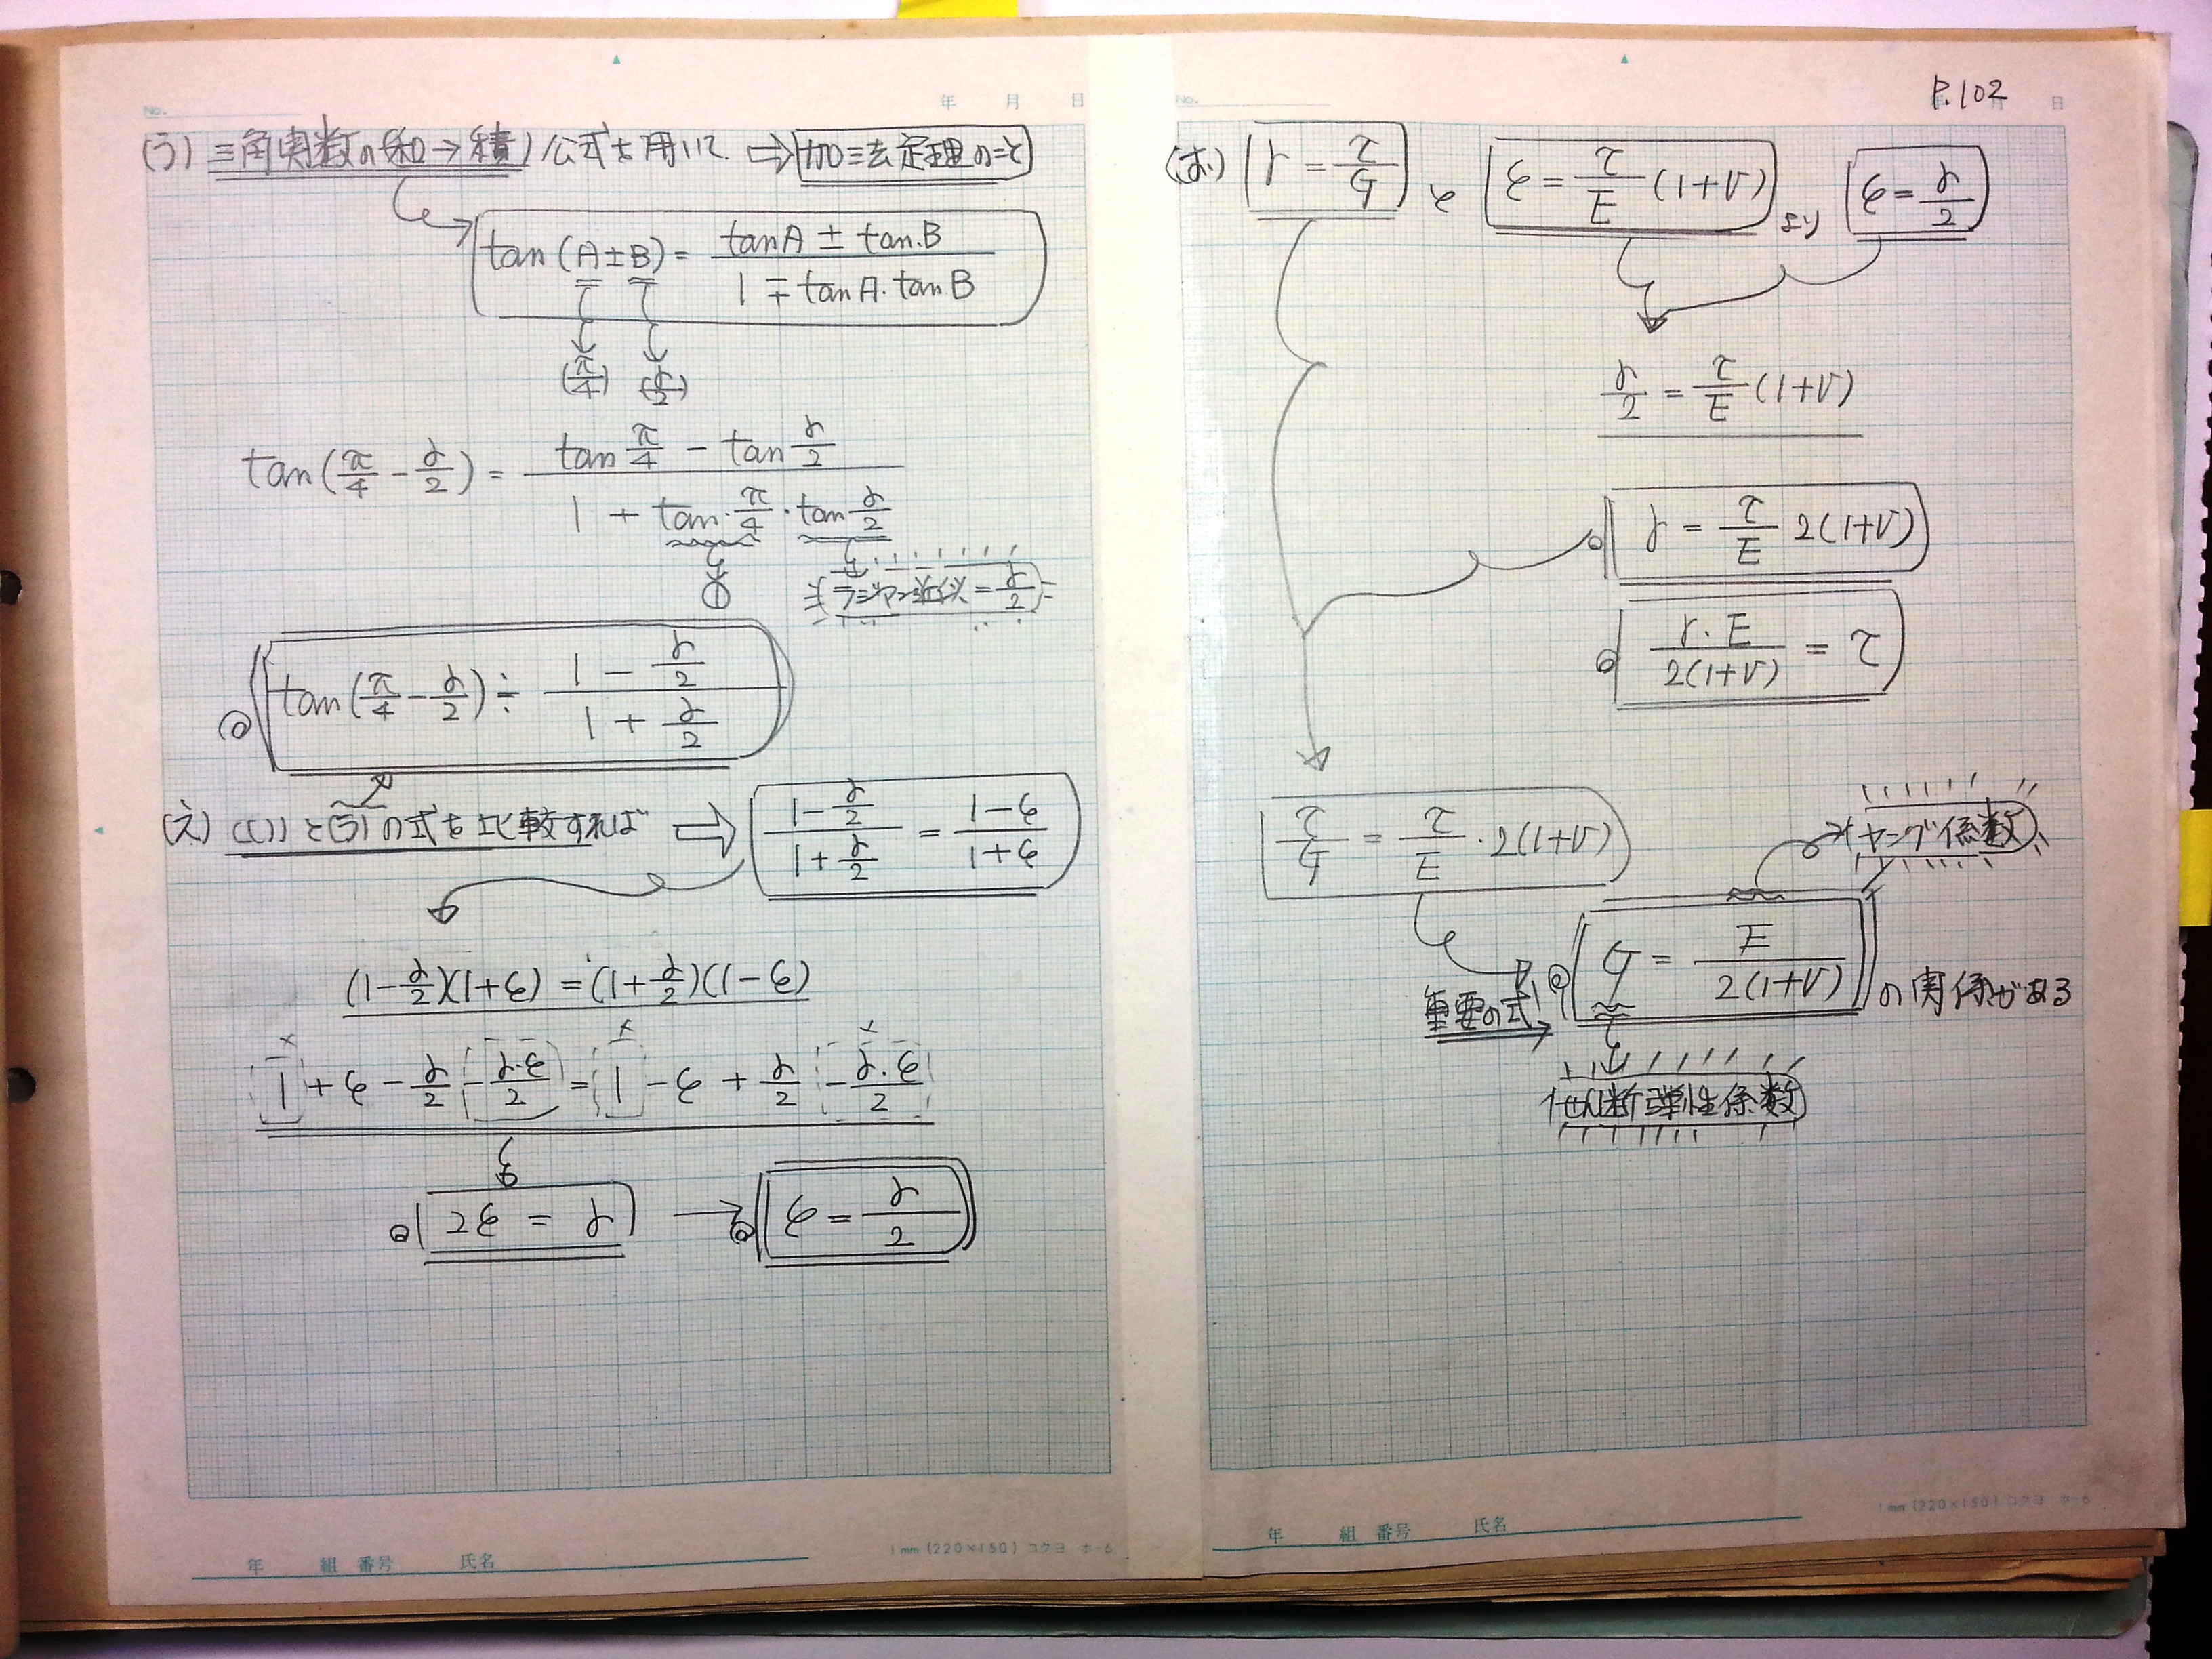 No.
年 月 日
(う) 三角関数の(和→積)公式を用いて. ⇨ 加法定理のこと
tan(A±B) = (tanA ± tan.B) / (1 ∓ tanA・tanB)
(π/4) (γ/2)
tan(π/4 - γ/2) = (tan π/4 - tan γ/2) / (1 + tan・π/4・tan γ/2)
① ラジアン近似 = γ/2
◎ tan(π/4 - γ/2) ≑ (1 - γ/2) / (1 + γ/2)
(え) (い)と(う)の式を比較すれば ⇨ (1 - γ/2) / (1 + γ/2) = (1 - ε) / (1 + ε)
(1 - γ/2)(1+ε) = (1 + γ/2)(1-ε)
1 + ε - γ/2 - γ・ε/2 = 1 - ε + γ/2 - γ・ε/2
2ε = γ → ε = γ/2
年 組 番号 氏名
1mm (220×150) コクヨ ホ-6
No.
P.102
年 月 日
(お) γ = τ/G と ε = τ/E (1+ν) より ε = γ/2
γ/2 = τ/E (1+ν)
γ = τ/E 2(1+ν)
γ・E / 2(1+ν) = τ
τ/G = τ/E・2(1+ν)
ヤング係数
重要の式! G = E / 2(1+ν) の関係がある
せん断弾性係数
年 組 番号 氏名
1mm (220×150) コクヨ ホ-6